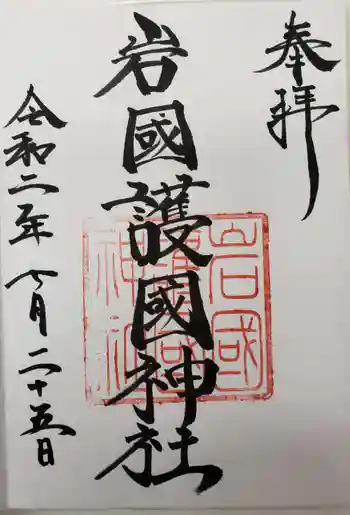 奉拝
岩國護國神社
岩國護國神社
令和二年七月二十五日